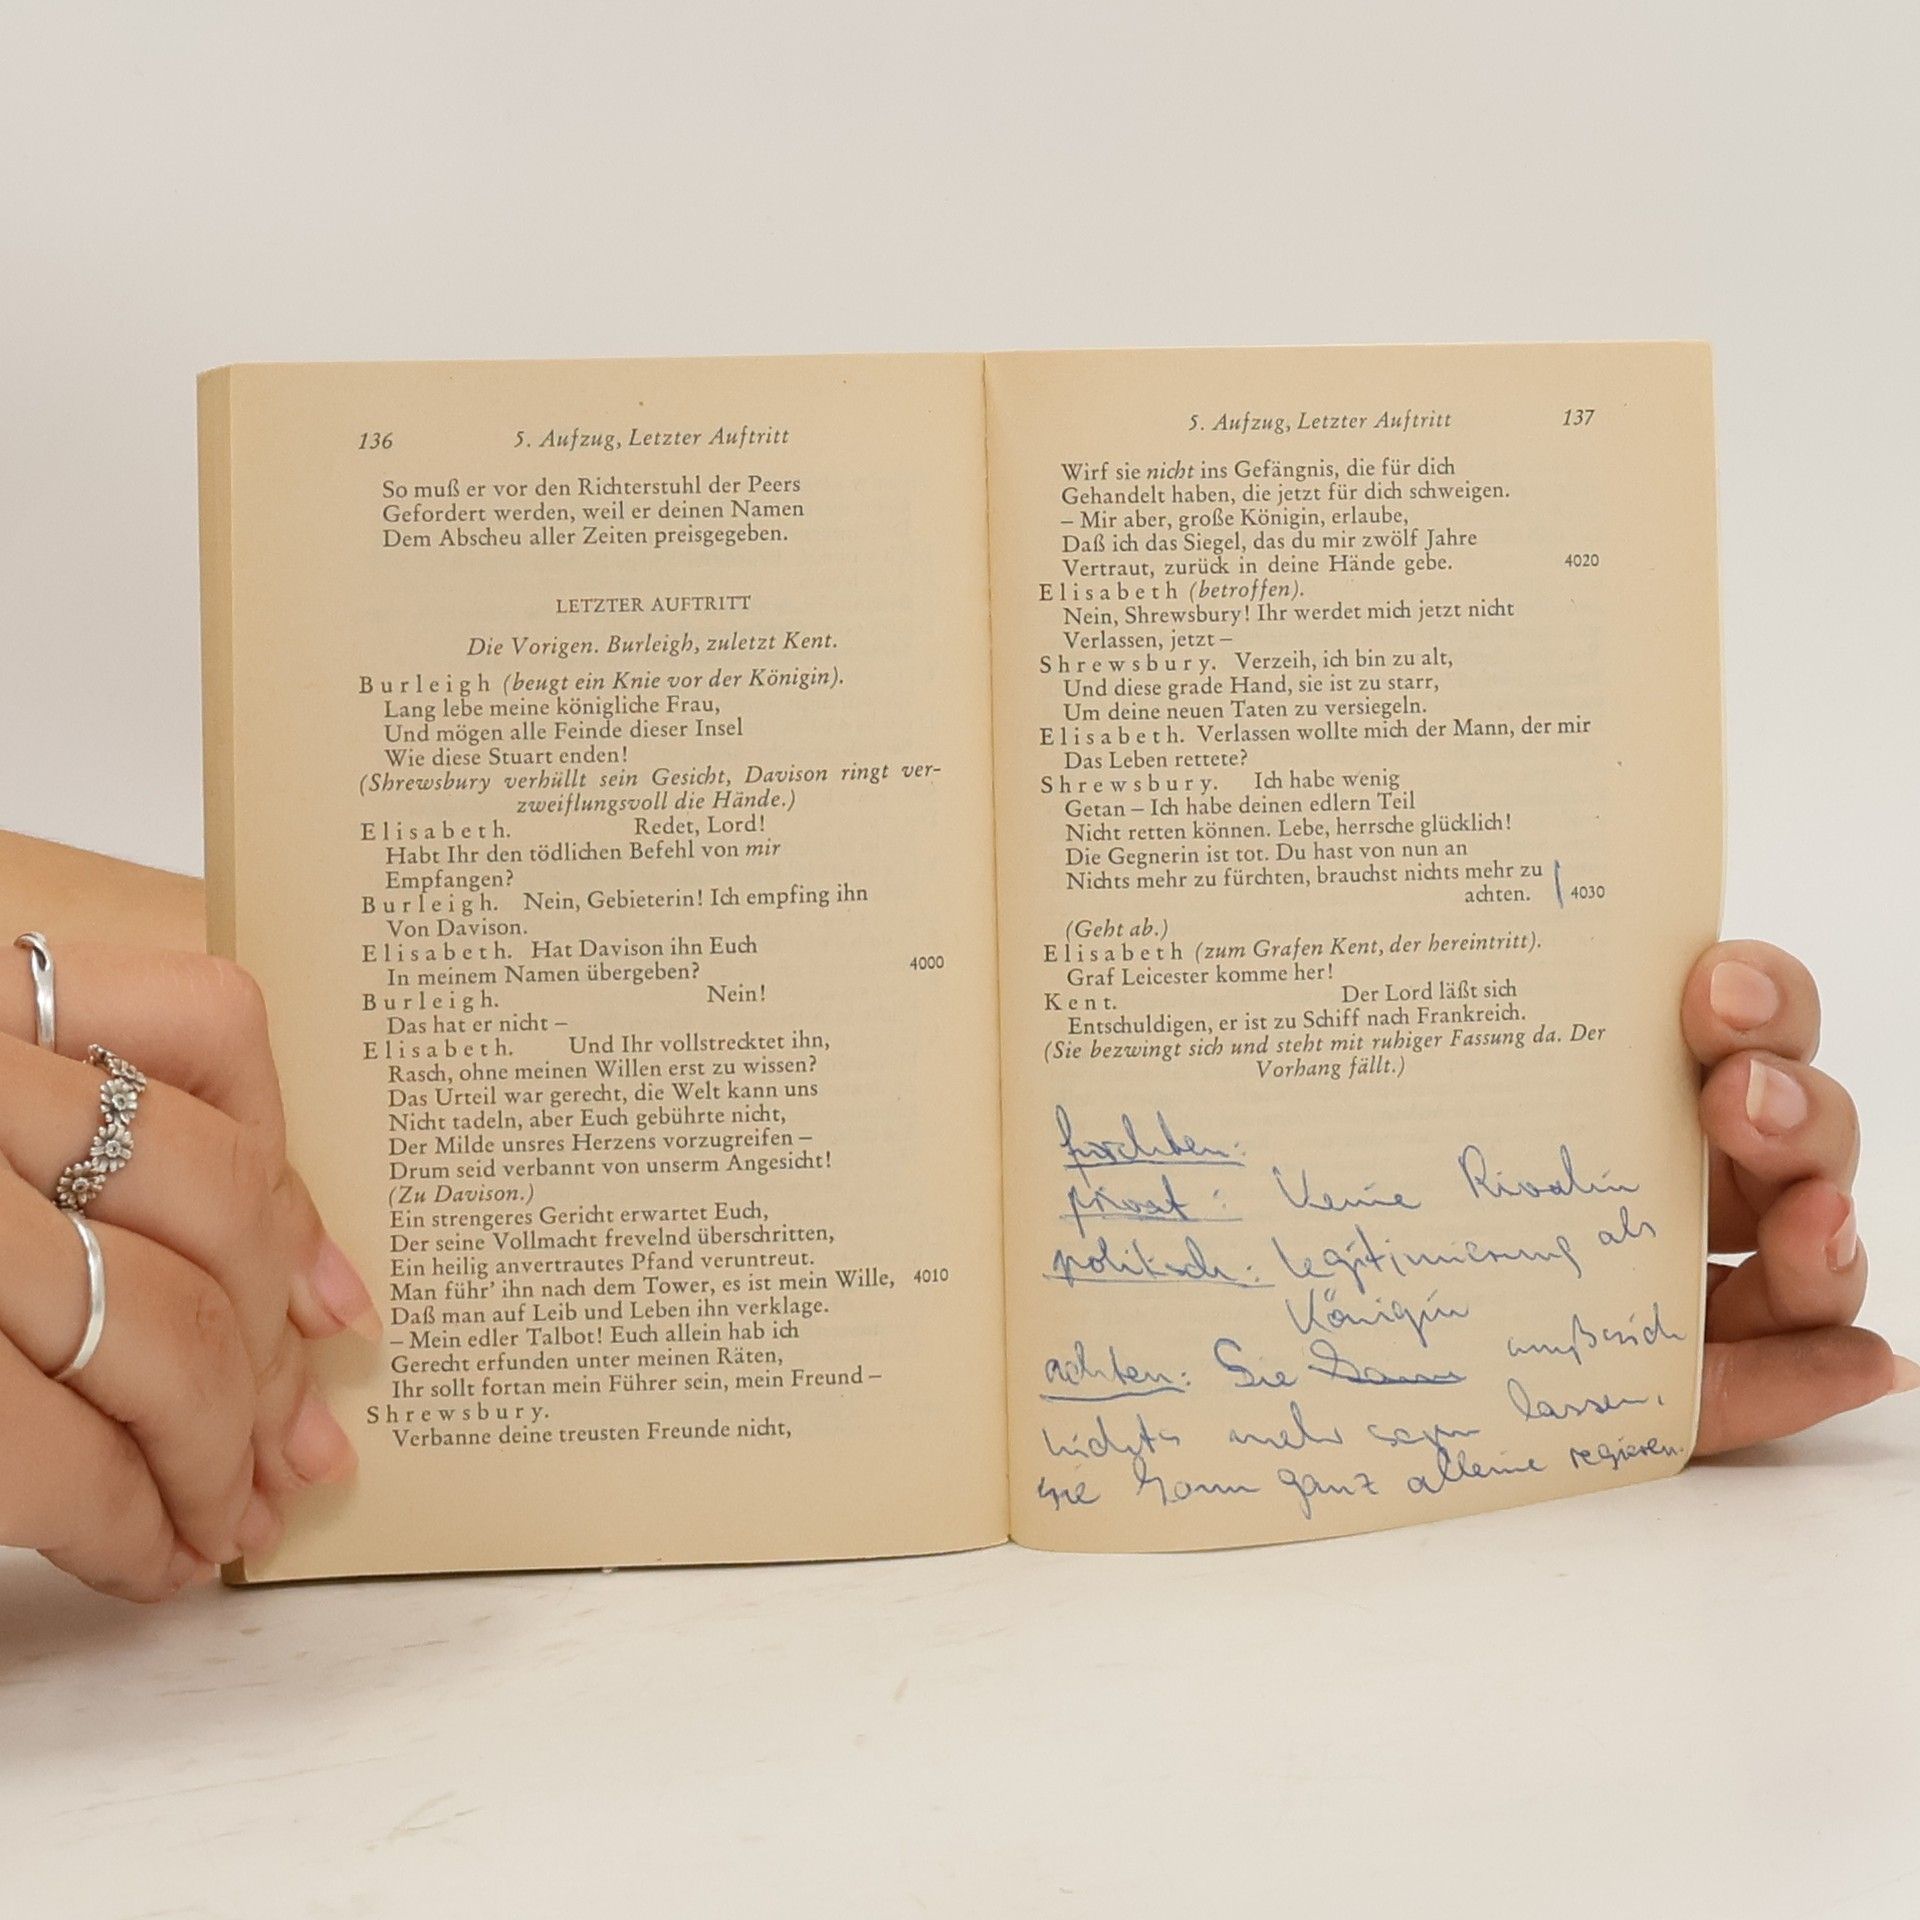 136 5. Aufzug, Letzter Auftritt
So muß er vor den Richterstuhl der Peers
Gefordert werden, weil er deinen Namen
Dem Abscheu aller Zeiten preisgegeben.
LETZTER AUFTRITT
Die Vorigen. Burleigh, zuletzt Kent.
Burleigh (beugt ein Knie vor der Königin).
Lang lebe meine königliche Frau,
Und mögen alle Feinde dieser Insel
Wie diese Stuart enden!
(Shrewsbury verhüllt sein Gesicht, Davison ringt ver-
zweiflungsvoll die Hände.)
Elisabeth. Redet, Lord!
Habt Ihr den tödlichen Befehl von mir
Empfangen?
Burleigh. Nein, Gebieterin! Ich empfing ihn
Von Davison.
Elisabeth. Hat Davison ihn Euch
In meinem Namen übergeben? 4000
Burleigh. Nein!
Das hat er nicht –
Elisabeth. Und Ihr vollstrecktet ihn,
Rasch, ohne meinen Willen erst zu wissen?
Das Urteil war gerecht, die Welt kann uns
Nicht tadeln, aber Euch gebührte nicht,
Der Milde unsres Herzens vorzugreifen –
Drum seid verbannt von unserm Angesicht!
(Zu Davison.)
Ein strengeres Gericht erwartet Euch,
Der seine Vollmacht frevelnd überschritten,
Ein heilig anvertrautes Pfand veruntreut.
Man führ' ihn nach dem Tower, es ist mein Wille, 4010
Daß man auf Leib und Leben ihn verklage.
– Mein edler Talbot! Euch allein hab ich
Gerecht erfunden unter meinen Räten,
Ihr sollt fortan mein Führer sein, mein Freund –
Shrewsbury.
Verbanne deine treusten Freunde nicht,
5. Aufzug, Letzter Auftritt 137
Wirf sie nicht ins Gefängnis, die für dich
Gehandelt haben, die jetzt für dich schweigen.
– Mir aber, große Königin, erlaube,
Daß ich das Siegel, das du mir zwölf Jahre
Vertraut, zurück in deine Hände gebe. 4020
Elisabeth (betroffen).
Nein, Shrewsbury! Ihr werdet mich jetzt nicht
Verlassen, jetzt –
Shrewsbury. Verzeih, ich bin zu alt,
Und diese grade Hand, sie ist zu starr,
Um deine neuen Taten zu versiegeln.
Elisabeth. Verlassen wollte mich der Mann, der mir
Das Leben rettete?
Shrewsbury. Ich habe wenig
Getan – Ich habe deinen edlern Teil
Nicht retten können. Lebe, herrsche glücklich!
Die Gegnerin ist tot. Du hast von nun an
Nichts mehr zu fürchten, brauchst nichts mehr zu
achten. 4030
(Geht ab.)
Elisabeth (zum Grafen Kent, der hereintritt).
Graf Leicester komme her!
Kent. Der Lord läßt sich
Entschuldigen, er ist zu Schiff nach Frankreich.
(Sie bezwingt sich und steht mit ruhiger Fassung da. Der
Vorhang fällt.)
fürchten:
privat: Keine Rivalin
politisch: Legitimierung als
Königin
achten: Sie kann muß sich
nichts mehr sagen lassen,
sie kann ganz alleine regieren.